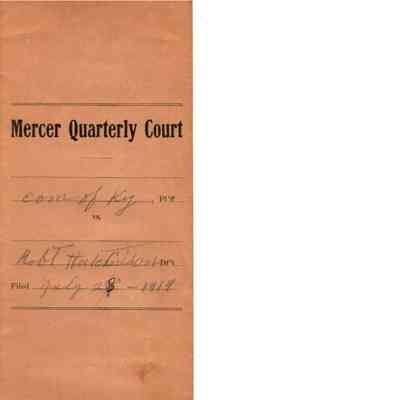 Mercer Quarterly Court
Com of Ky, Pl'ff
vs.
Robt Hutchinson Df't
Filed July 28 - 1919